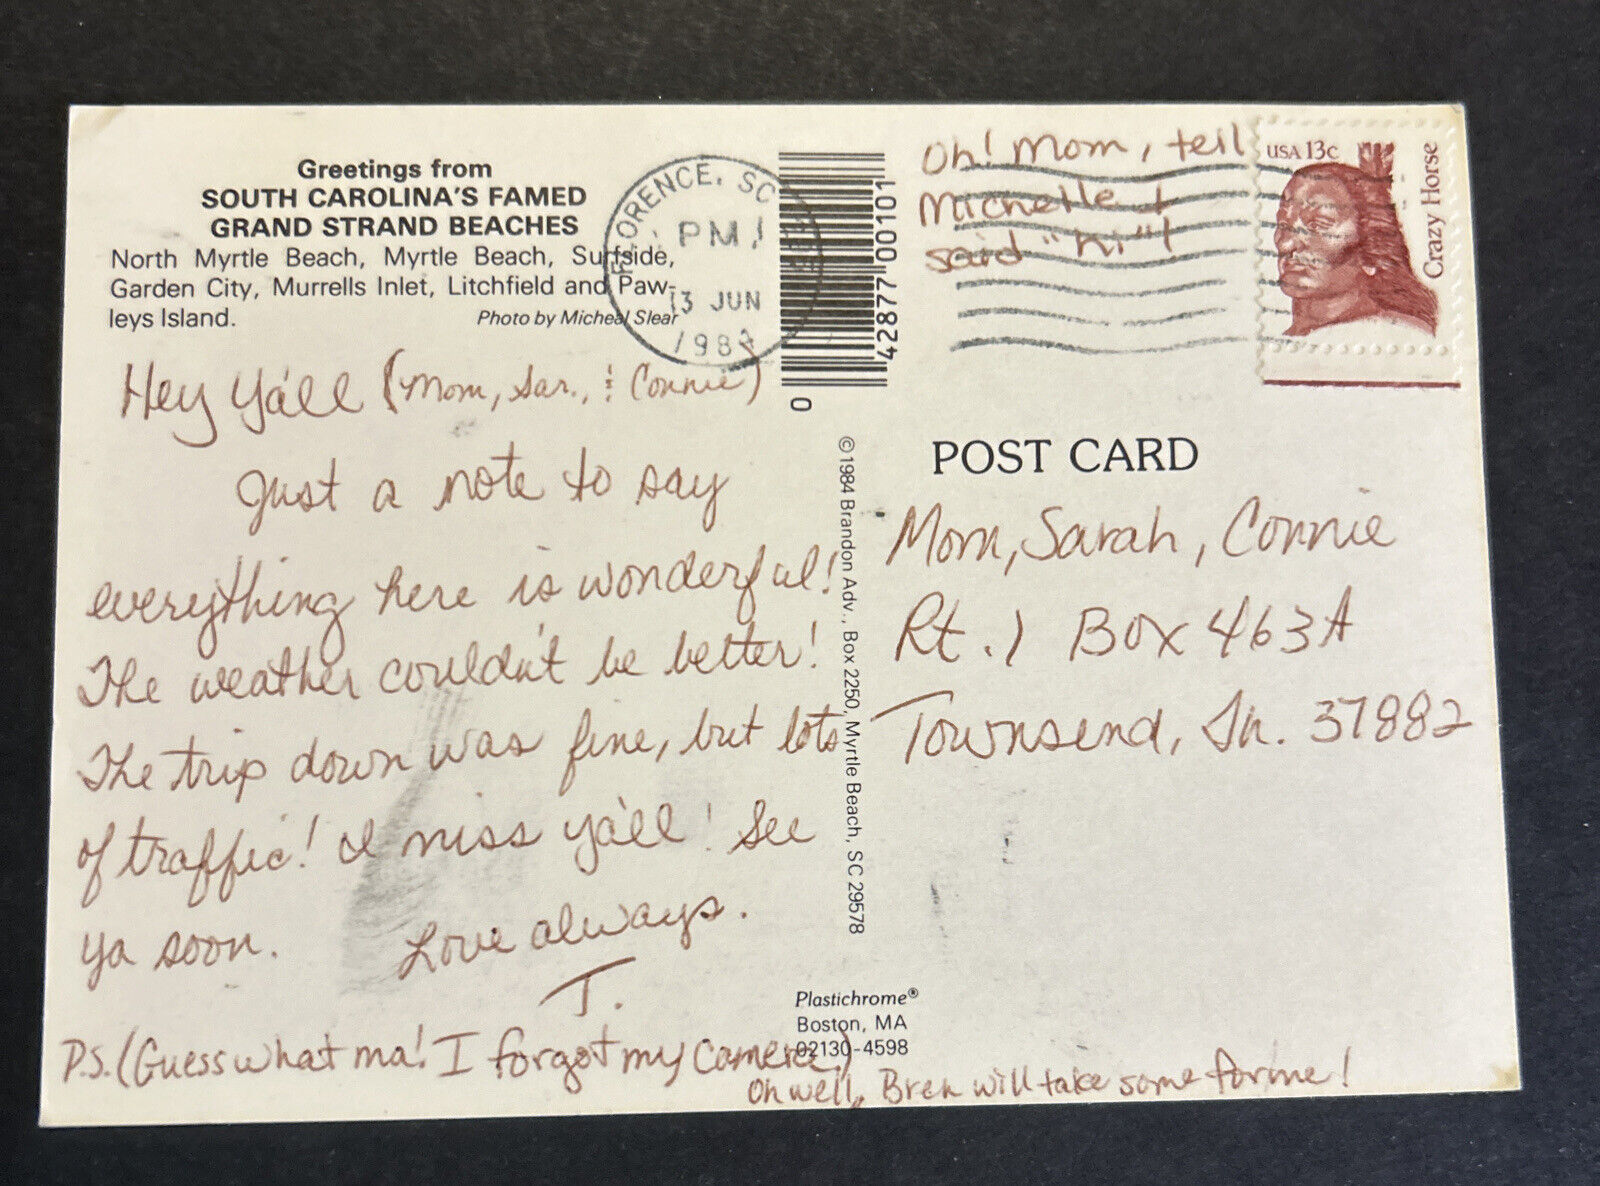 Greetings from
SOUTH CAROLINA'S FAMED
GRAND STRAND BEACHES
North Myrtle Beach, Myrtle Beach, Surfside,
Garden City, Murrells Inlet, Litchfield and Paw-
leys Island.
Photo by Micheal Slear
FLORENCE, SC
PM
13 JUN
198
0
42877 00101
Oh! Mom, tell
Michelle I
said "hi"!
USA 13c
Crazy Horse
Hey Ya'll (Mom, Sar., & Connie)
Just a note to say
everything here is wonderful!
The weather couldn't be better!
The trip down was fine, but lots
of traffic! I miss ya'll! See
ya soon. Love always.
T.
P.S. (Guess what ma! I forgot my camera.)
Oh well, Bren will take some for me!
©1984 Brandon Adv., Box 2250, Myrtle Beach, SC 29578
Plastichrome®
Boston, MA
02130-4598
POST CARD
Mom, Sarah, Connie
Rt. 1 Box 463A
Townsend, Tn. 37882